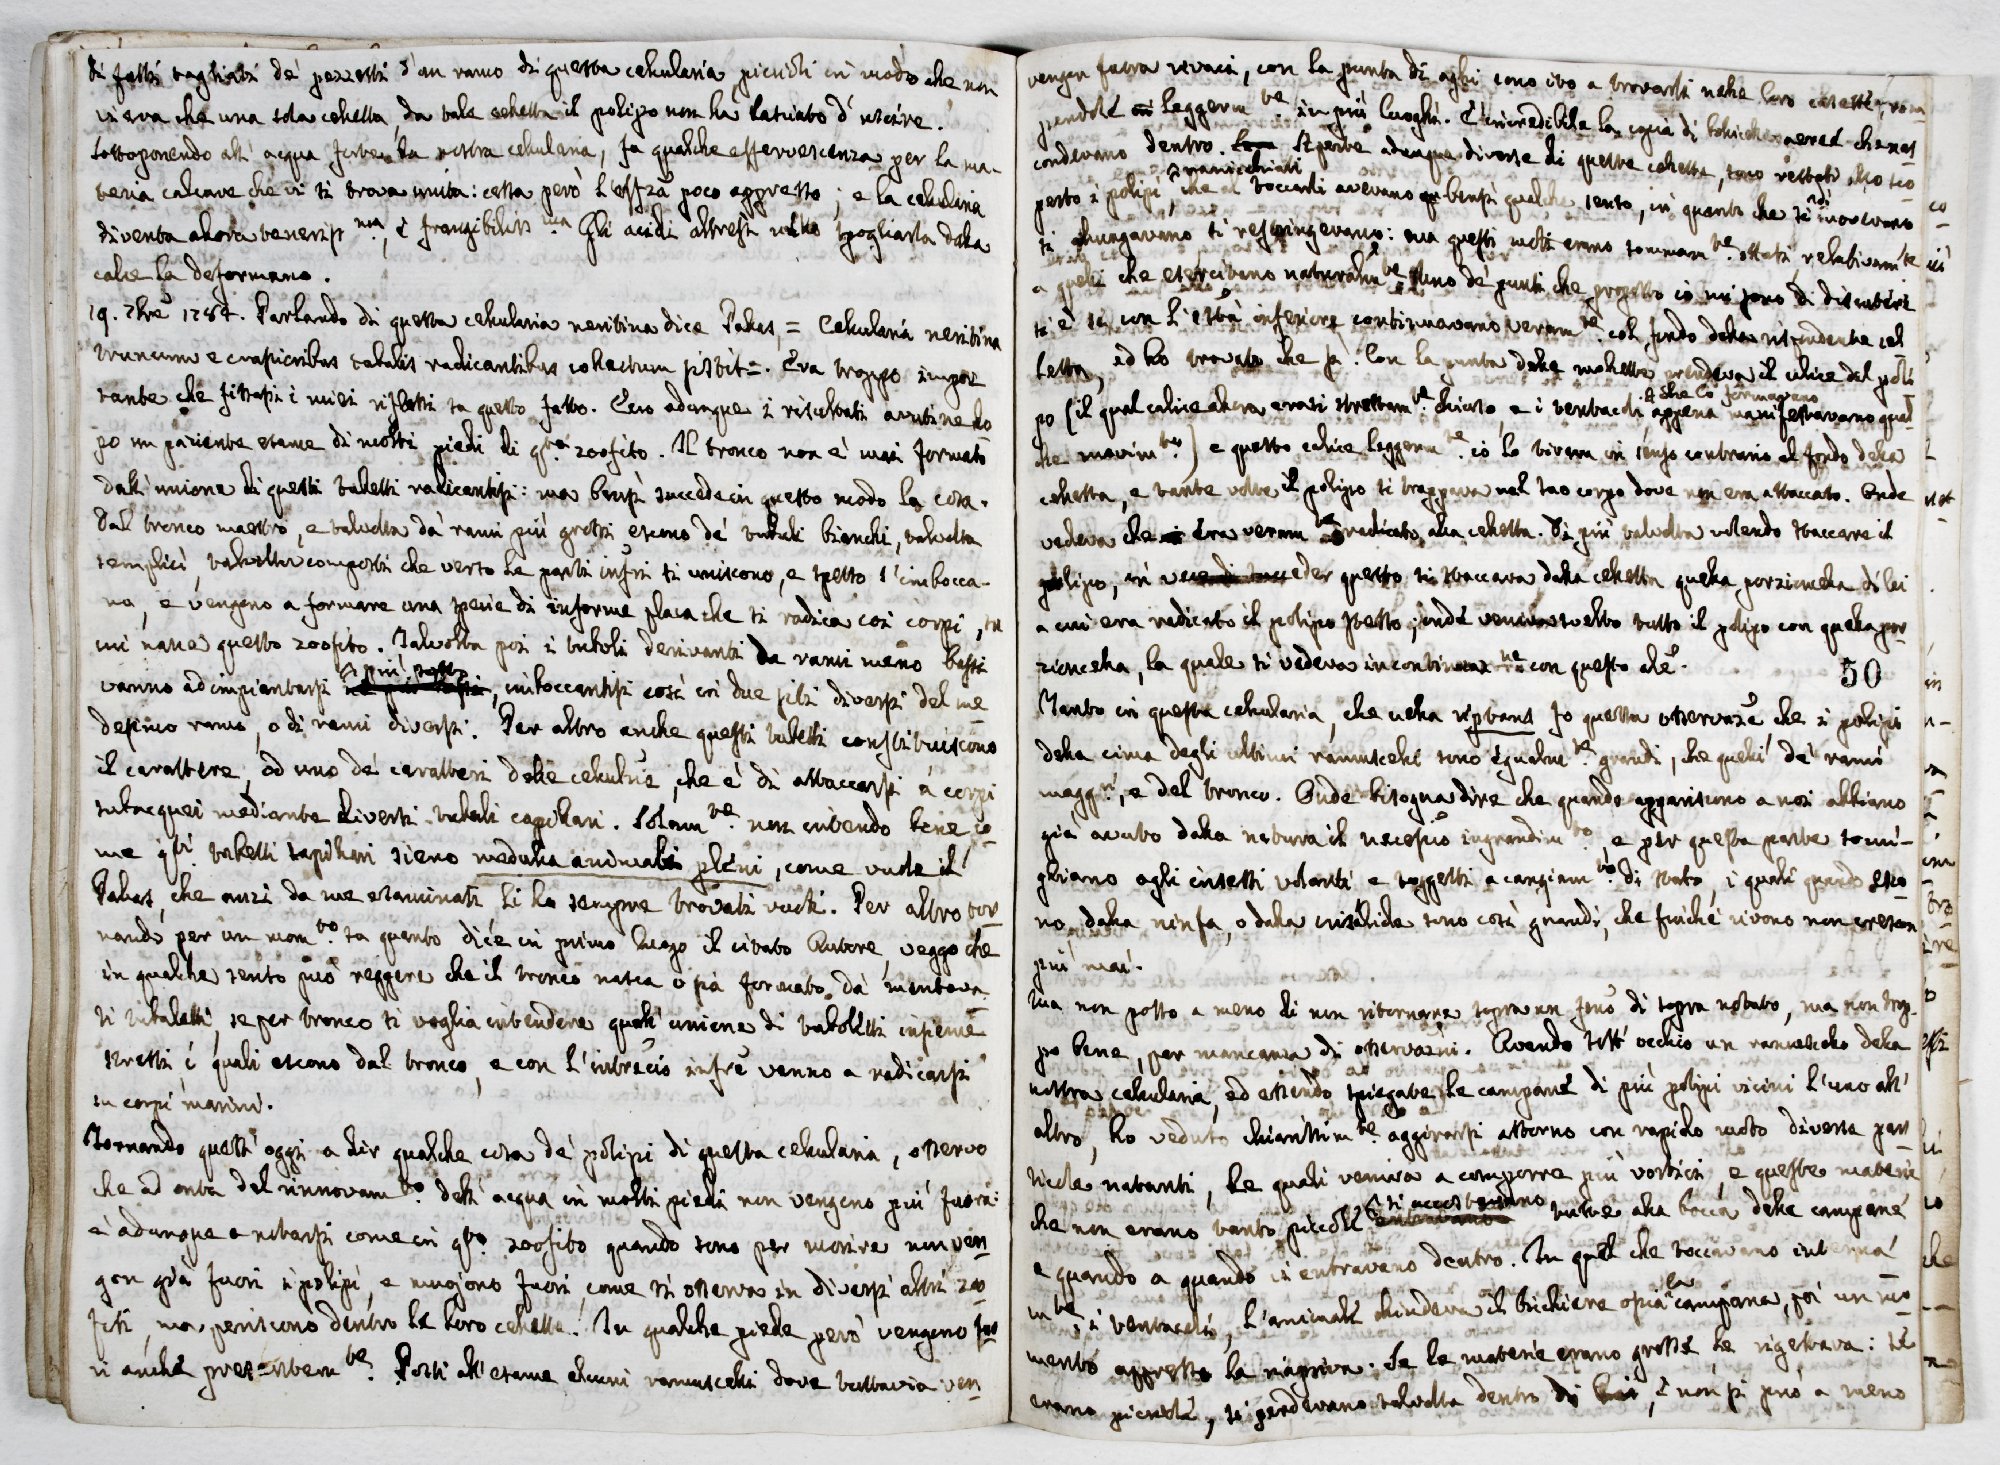 di fatti tagliati de' pezzetti d'un ramo di questa cellularia piccioli in modo che non
v'era che una sola celletta da tale celletta il polipo non ha lasciato d'uscire.
Sottoponendo all' acqua forte la nostra cellularia, fa qualche effervescenza per la ma-
teria calcare che vi si trova unita: cessa però l'effza poco appresso; e la cellularia
diventa allora tenerissma, e frangibiliss.ma Gli acidi altresì nello spogliarla dalla
calce la deformano.
19. 7bre 1784. Parlando di questa cellularia neritina dice Pallas, = Cellularia neritina
truncum e crassioribus tubulis radicantibus collectum sistit =. Era troppo impor
tante che fissassi i miei riflessi su questo fatto. Ecco adunque i risultati avutine do
po un paziente esame di molti piedi di qto zoofito. Il tronco non è mai formato
dall' unione di questi tubetti radicantisi: ma bensì succede in questo modo la cosa.
Dal tronco maestro, e talvolta da' rami più grossi escono de' tubuli bianchi, talvolta
semplici, talvolta composti che verso le parti infri si uniscono, e spesso s'imbocca-
no, e vengono a formare una specie di informe placa che si radica coi corpi, su
cui nasce questo zoofito. Talvolta poi i tuboli derivanti da rami meno bassi
vanno ad impiantarsi più sotto, imboccantisi così in due siti diversi del me
desimo ramo, o di rami diversi. Per altro anche questi tubetti constituiscono
il carattere, od uno de' caratteri delle cellulrie, che è di attaccarsi a' corpi
subacquei mediante diversi tubuli capillari. Solam.te non intendo bene co
me qti tubetti capillari sieno medulla animali pleni, come vuole il
Pallas, che anzi da me esaminati li ho sempre trovati vuoti. Per altro tor
nando per un mom.to su quanto dice in primo luogo il citato Autore, veggo che
in qualche senso può reggere che il tronco nasca o sia formato da' mentova
ti tubuletti, se per tronco si voglia intendere quell' unione di tuboletti insieme
stretti i quali escono dal tronco, e con l'intreccio infre vanno a radicarsi
su corpi marini.
Tornando quest' oggi a dir qualche cosa de' polipi di questa cellularia, osservo
che ad onta del rinnovam.to dell' acqua in molti piedi non vengono più fuori:
è adunque a notarsi come in qto zoofito quando sono per morire non ven
gon già fuori i polipi, e muojono fuori, come si osserva in diversi altri zoo
fiti, ma periscono dentro le loro cellette. In qualche piede però vengono fuo
ri anche presentem.te Posti all' esame alcuni ramuscelli dove tuttavia ven
vengon fuora vivaci, con la punta di aghi sono ito a trovarli nelle loro cellette,
pendole leggerm.te in più luoghi. È incredibile la copia di bollicelle aeree che nas
condevano dentro. Aperte adunque diverse di queste cellette, sono restati allo sco
perto i polipi rannicchiati, che al toccarli avevano bensì qualche senso, in quanto che si movevano
si allungavano si restringevano: ma questi moti erano sommam.te ottusi relativam.te
a quelli che esercitano naturalm.te Uno de' punti che proposto io mi sono di discutere
si è se con l'està inferiore continuavano veram.te col fondo della rispondente cel
letta, ed ho trovato che sì. Con la punta delle mollette prendeva il calice del poli
po (il qual calice allora erasi strettam.te chiuso, e i tentacoli che lo formavano appena manifestavano qual
che movim.to) e questo calice leggerm.te io lo tirava in senso contrario al fondo della
celletta, e tante volte il polipo si strappava nel suo corpo dove non era attaccato. Onde
vedeva che era veram.te radicato alla celletta. Di più talvolta volendo staccare il
polipo, in vece di succeder questo si staccava dalla celletta quella porzioncella di lei
a cui era radicato il polipo stesso; onde veniva svelto tutto il polipo con quella por
zioncella, la quale si vedeva incontinua ne con questo che.
50
Tanto in questa cellularia, che nella reptans fo questa osservaze che i polipi
della cima degli ultimi ramuscelli sono egualm.te grandi, che quelli de' rami
magg.ri, e del tronco. Onde bisogna dire che quando appariscono a noi abbiano
già avuto dalla natura il necessrio ingrandim.to, e per questa parte somi-
gliano agli insetti volanti e soggetti a cangiam.to di stato, i quali quando esco
no dalla ninfa, o dalla crisalide sono così grandi, che finché vivono non crescon
più mai.
Ma non posso a meno di non ritornare sopra un feno di sopra notato, ma non trop-
po bene, per mancanza di osservazni. Avendo sott' occhio un ramuscello della
nostra cellularia, ed essendo spiegate le campane di più polipi vicini l'uno all'
altro, ho veduto chiarissim.te aggirarsi attorno con rapido moto diverse par
ticole natanti, le quali veniva a comporre più vortici, e queste materie
che non erano tanto piccole si accostavano tutte alla bocca delle campane
e quando a quando vi entravano dentro. In quel che toccavano internam
te i tentacoli, l'animale chiudeva il bichiere o sia la campana, poi un mo
mento appresso la riapriva. Se le materie erano grosse le rigettava: se
erano picciole, si perdevano talvolta dentro, e non si può a meno